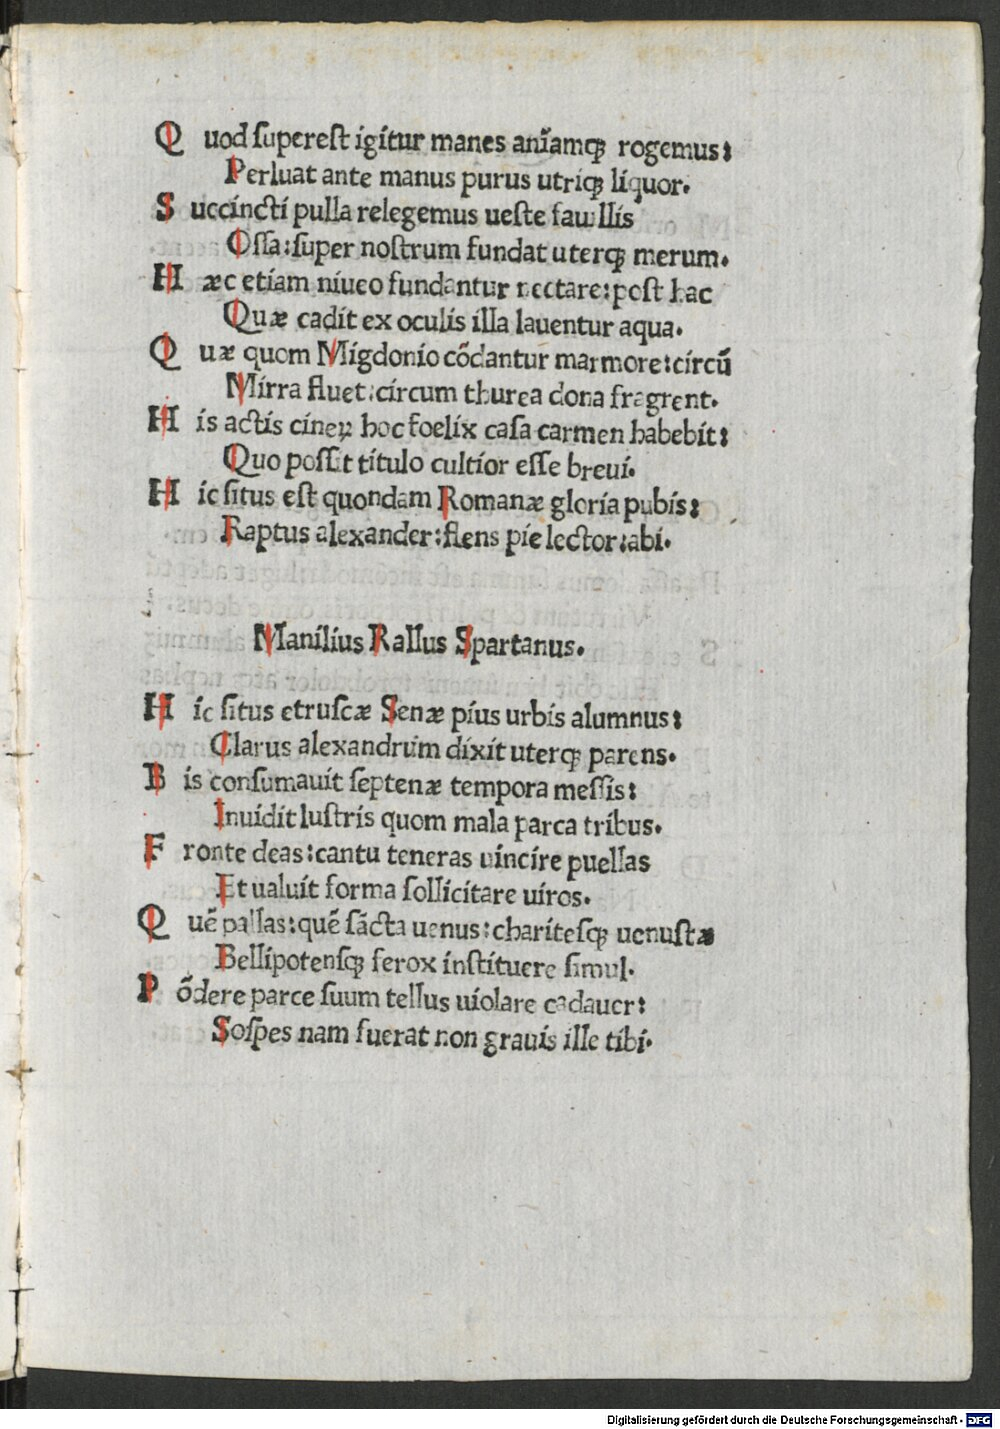 Quod superest igitur manes anĩamqꝫ rogemus:
Perluat ante manus purus utriqꝫ liquor.
Succincti pulla relegemus ueste fauillis
Ossa: super nostrum fundat uterqꝫ merum.
Hæc etiam niueo fundantur nectare: post hac
Quæ cadit ex oculis illa lauentur aqua.
Quæ quom Migdonio cõdantur marmore: circũ
Mirra fluet: circum thurea dona fragrent.
His actis cineꝝ hoc foelix casa carmen habebit:
Quo possit titulo cultior esse breui.
Hic situs est quondam Romanæ gloria pubis:
Raptus alexander: flens pie lector: abi.
Manilius Rallus Spartanus.
Hic situs etruscæ Senæ pius urbis alumnus:
Clarus alexandrum dixit uterqꝫ parens.
Bis consumauit septenæ tempora messis:
Inuidit lustris quom mala parca tribus.
Fronte deas: cantu teneras uincire puellas
Et ualuit forma sollicitare uiros.
Quẽ pallas: quẽ sãcta uenus: charitesqꝫ uenustæ
Bellipotensqꝫ ferox instituere simul.
Põdere parce suum tellus uiolare cadauer:
Sospes nam fuerat non grauis ille tibi.
Digitalisierung gefördert durch die Deutsche Forschungsgemeinschaft - DFG